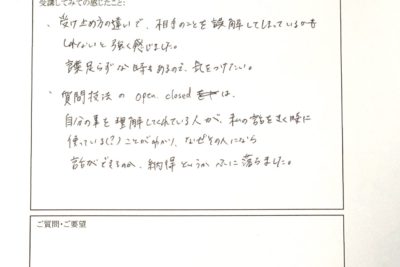 受講してみての感じたこと:
・受け止め方の違いで、相手のことを誤解してしまっているかも
しれないと強く感じました。
言葉足らずな時もあるので、気をつけたい。
・質問技法の open. closed は、
自分の事を理解してくれている人が、私の話をきく時に
使っている(?)ことがわかり、なぜその人になら
話ができるのか、納得というか ふに落ちました。
ご質問・ご要望